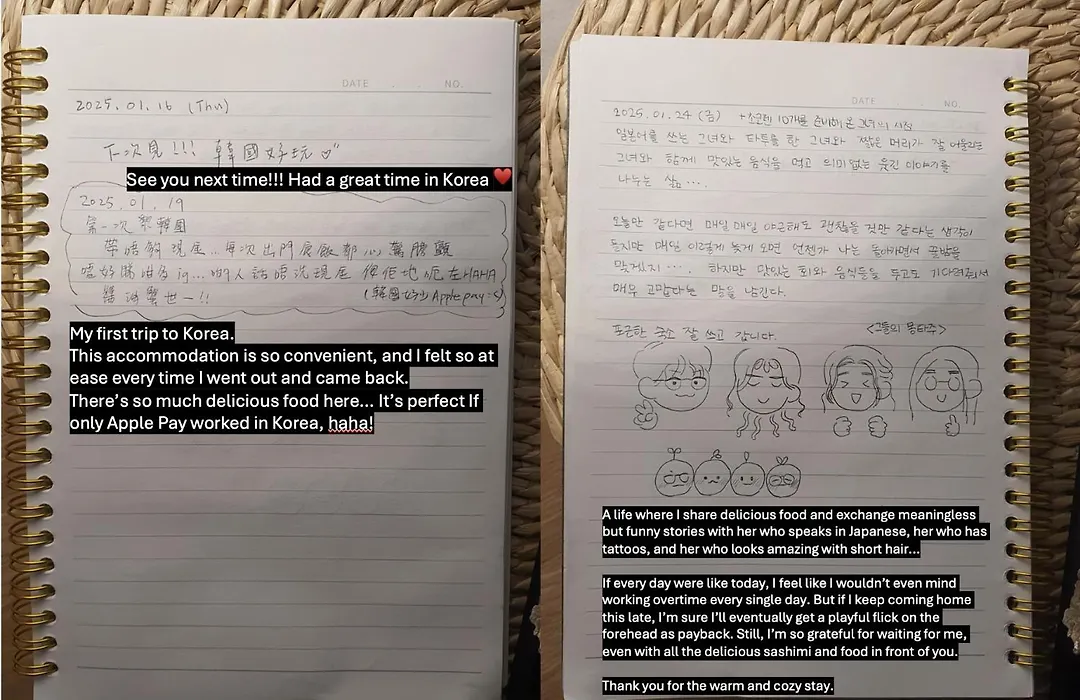 DATE . . NO.
2025.01.16 (Thu)
下次見!!! 韓國好玩♡"
See you next time!!! Had a great time in Korea ❤️
2025.01.19
第一次黎韓國
帶唔夠現金..每次出門食飯都心驚膽顫
唔好睇咁多ig...啲人話唔洗現金 俾佢地呃左HAHA
醬油蟹世一!! (韓國好少Apple pay :<)
My first trip to Korea.
This accommodation is so convenient, and I felt so at
ease every time I went out and came back.
There's so much delicious food here... It's perfect If
only Apple Pay worked in Korea, haha!
DATE . . NO.
2025.01.24 (금) + 10개를 준비해 온 그녀의 시점
일본어를 쓰는 그녀와 타투를 한 그녀와 짧은 머리가 잘 어울리는
그녀와 함께 맛있는 음식을 먹고 의미없는 웃긴 이야기를
나누는 삶....
오늘만 같다면 매일 매일 야근해도 괜찮을 것만 같다는 생각이
들지만 매일 이렇게 늦게 오면 언젠가 나는 돌아가면서 꿀밤을
맞겠지.... 하지만 맛있는 회와 음식들을 두고도 기다려주어서
매우 고맙다는 말을 남긴다.
포근한 숙소 잘 쓰고 갑니다. <그들의 몽타주>
A life where I share delicious food and exchange meaningless
but funny stories with her who speaks in Japanese, her who has
tattoos, and her who looks amazing with short hair...
If every day were like today, I feel like I wouldn't even mind
working overtime every single day. But if I keep coming home
this late, I'm sure I'll eventually get a playful flick on the
forehead as payback. Still, I'm so grateful for waiting for me,
even with all the delicious sashimi and food in front of you.
Thank you for the warm and cozy stay.